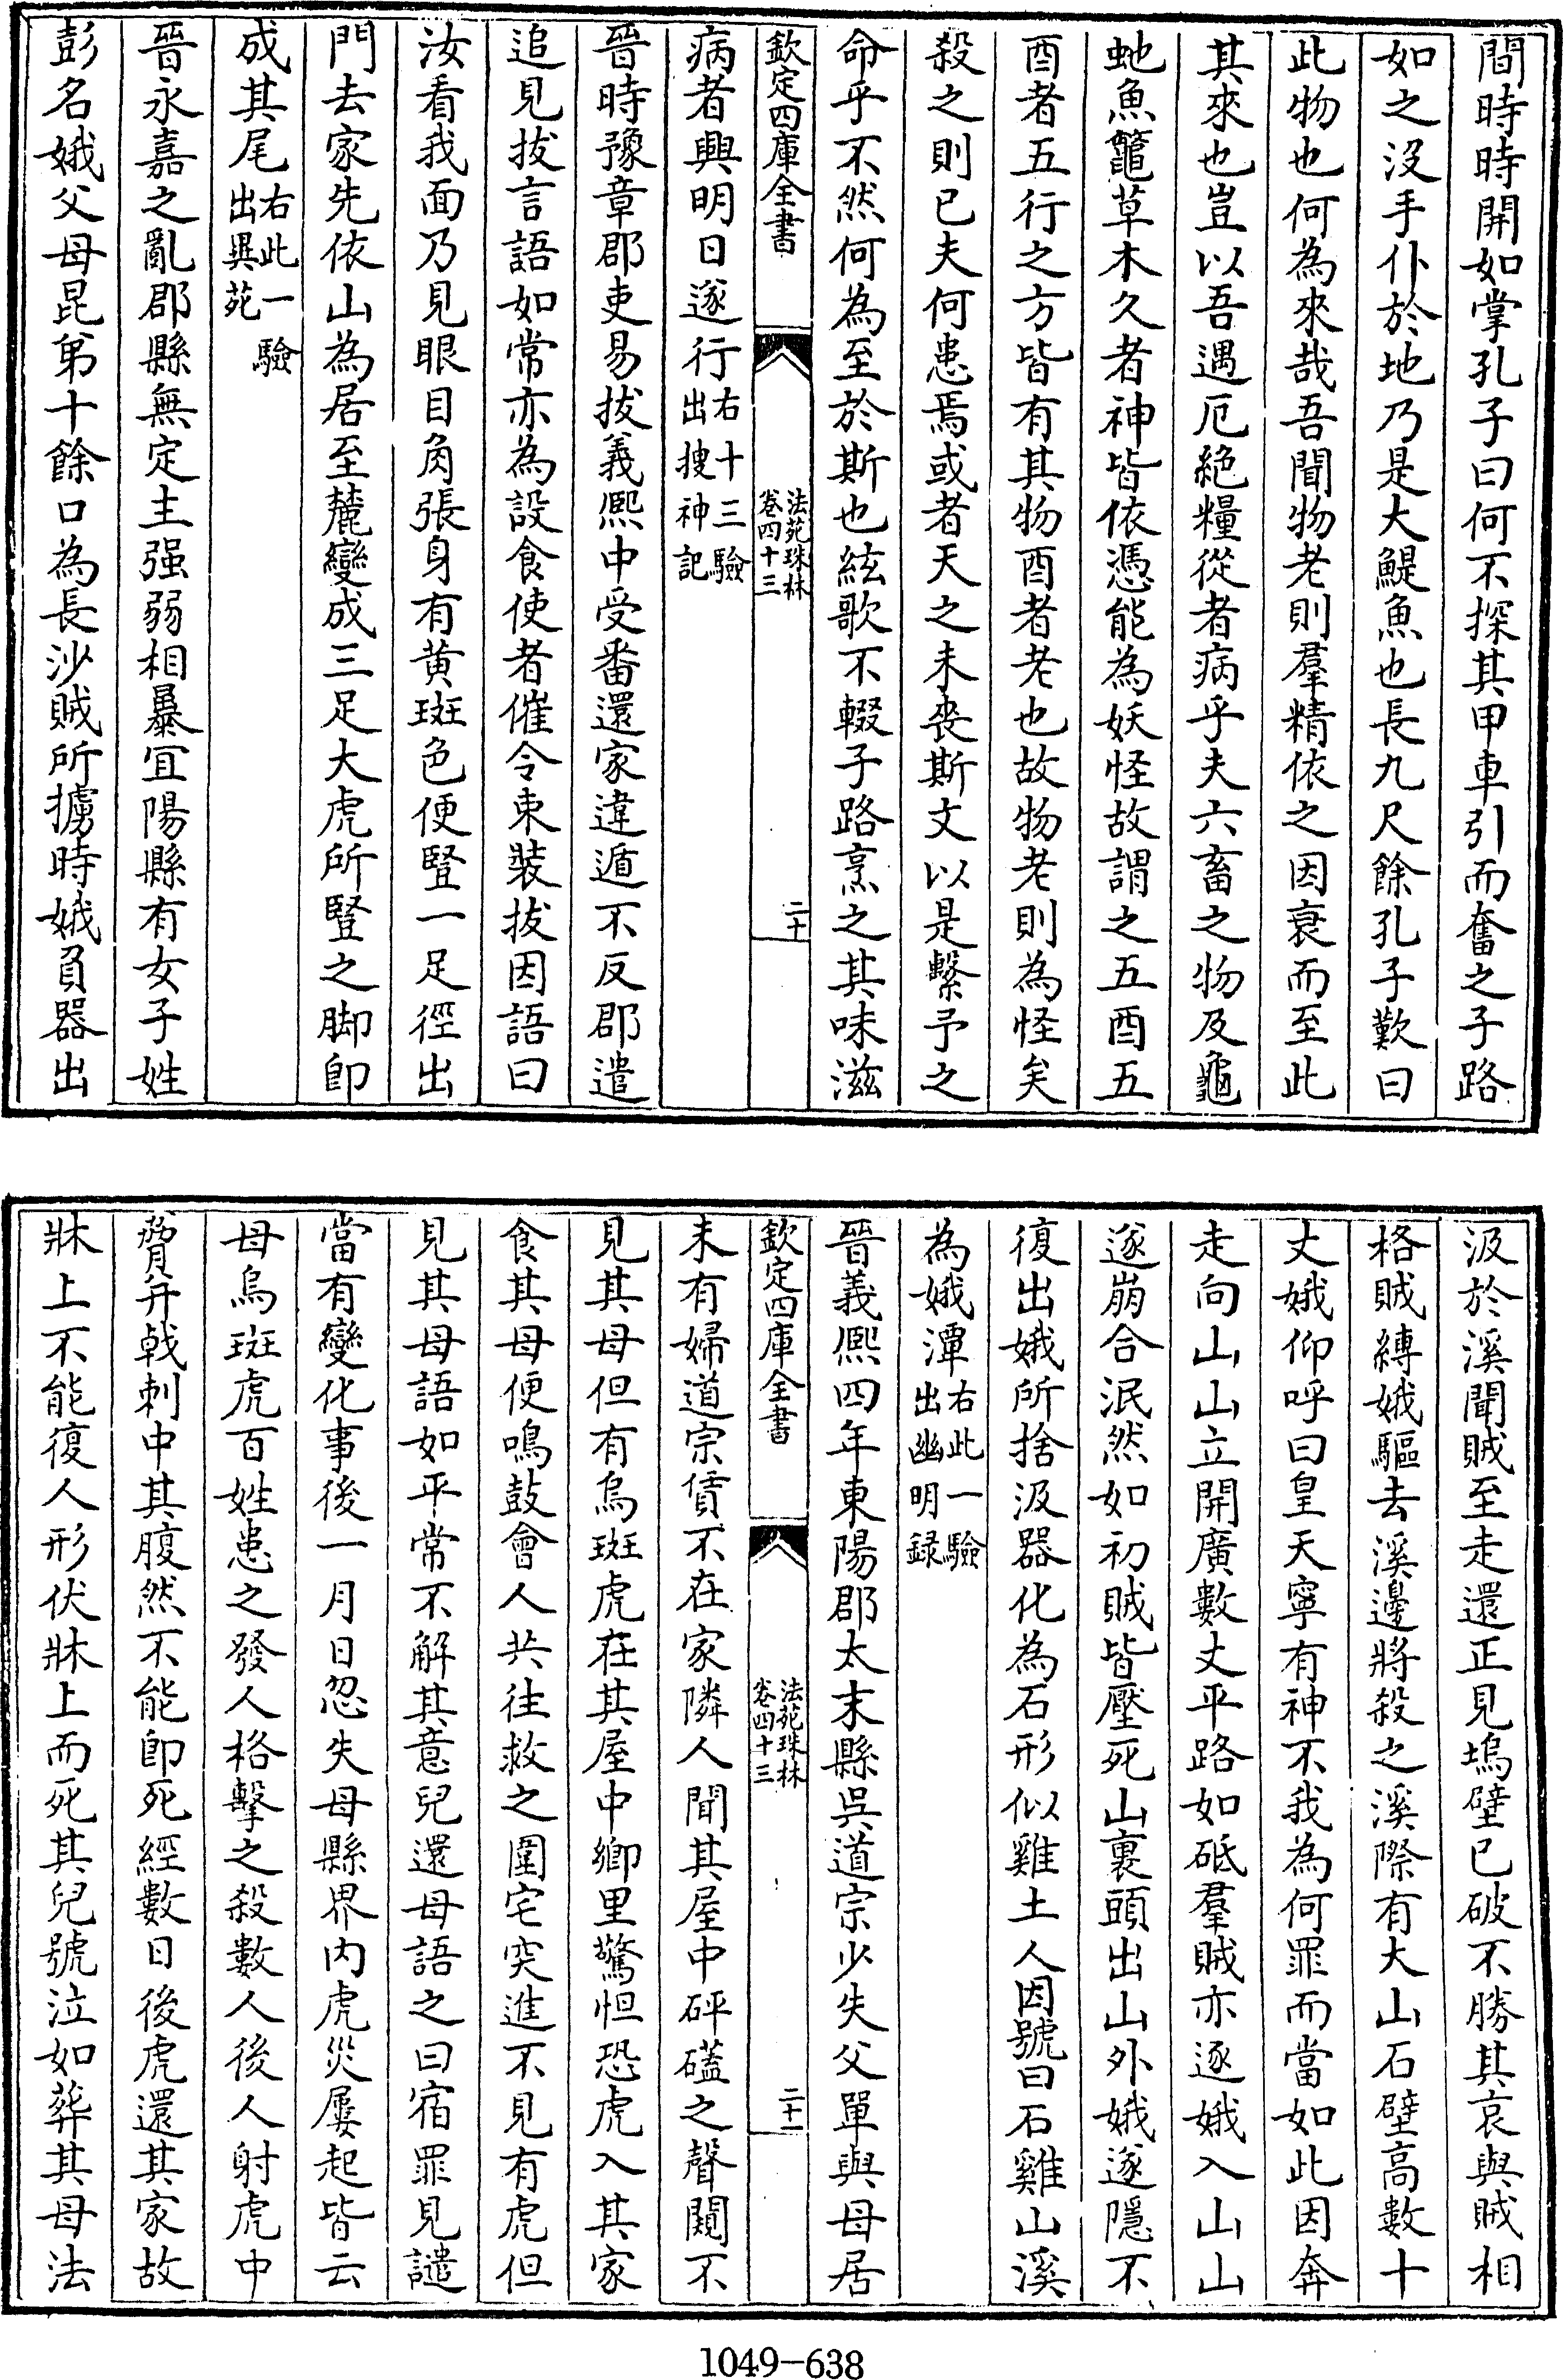 間時時開如掌孔子曰何不探其甲車引而奮之子路
如之没手仆於地乃是大鯷魚也長九尺餘孔子歎曰
此物也何為來哉吾聞物老則羣精依之因衰而至此
其來也豈以吾遇厄絶糧從者病乎夫六畜之物及龜
虵魚鼈草木久者神皆依憑能為妖怪故謂之五酉五
酉者五行之方皆有其物酉者老也故物老則為怪矣
殺之則已夫何患焉或者天之未喪斯文以是繫予之
命乎不然何為至於斯也絃歌不輟子路烹之其味滋
欽定四庫全書
法苑珠林
卷四十三
二十
病者興明日遂行右十三驗
出搜神記
晉時豫章郡吏易拔義熙中受番還家違遁不反郡遣
追見拔言語如常亦為設食使者催令束裝拔因語曰
汝看我面乃見眼目角張身有黄斑色便豎一足徑出
門去家先依山為居至麓變成三足大虎所豎之脚即
成其尾右此一驗
出異苑
晉永嘉之亂郡縣無定主强弱相暴宜陽縣有女子姓
彭名娥父母昆弟十餘口為長沙賊所擄時娥負器出
汲於溪聞賊至走還正見塢壁已破不勝其哀與賊相
格賊縛娥驅去溪邊將殺之溪際有大山石壁高數十
丈娥仰呼曰皇天寧有神不我為何罪而當如此因奔
走向山山立開廣數丈平路如砥羣賊亦逐娥入山山
遂崩合泯然如初賊皆壓死山裏頭出山外娥遂隱不
復出娥所捨汲器化為石形似雞土人因號曰石雞山溪
為娥潭右此一驗
出幽明録
晉義熙四年東陽郡太末縣吳道宗少失父單與母居
欽定四庫全書
法苑珠林
卷四十三
二十一
未有婦道宗賃不在家隣人聞其屋中砰礚之聲闚不
見其母但有烏斑虎在其屋中鄉里驚怛恐虎入其家
食其母便鳴鼓會人共往救之圍宅突進不見有虎但
見其母語如平常不解其意兒還母語之曰宿罪見譴
當有變化事後一月日忽失母縣界内虎災屢起皆云
母烏斑虎百姓患之發人格擊之殺數人後人射虎中
膺并戟刺中其腹然不能即死經數日後虎還其家故
牀上不能復人形伏牀上而死其兒號泣如葬其母法
1049-638